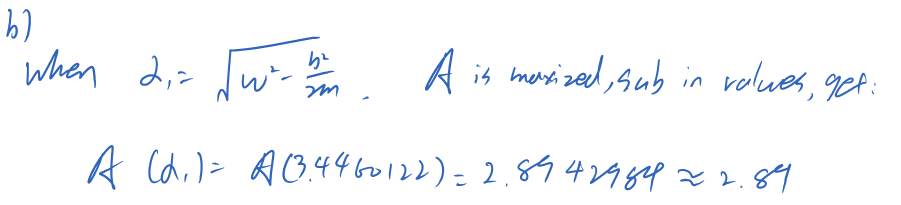 b)
When α₁ = √(w² - b²/2m). A is maxized, sub in values, get:
A (α₁) = A(3.4460122) = 2.8942984 ≈ 2.89